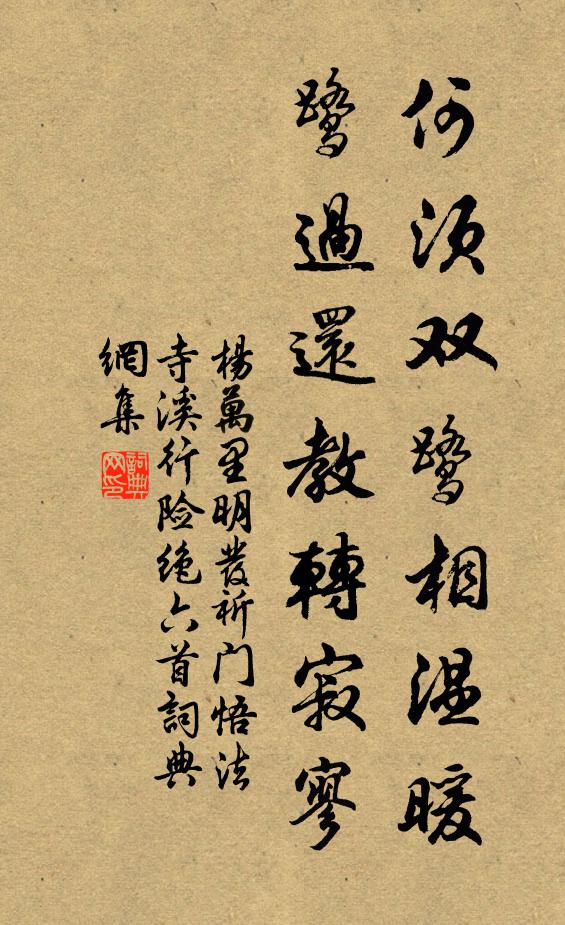 何须双鹭相温暖
鹭過還教轉寂寥
楊萬里明發祈门悟法
寺溪行险绝六首詞典
網集
詞典网印